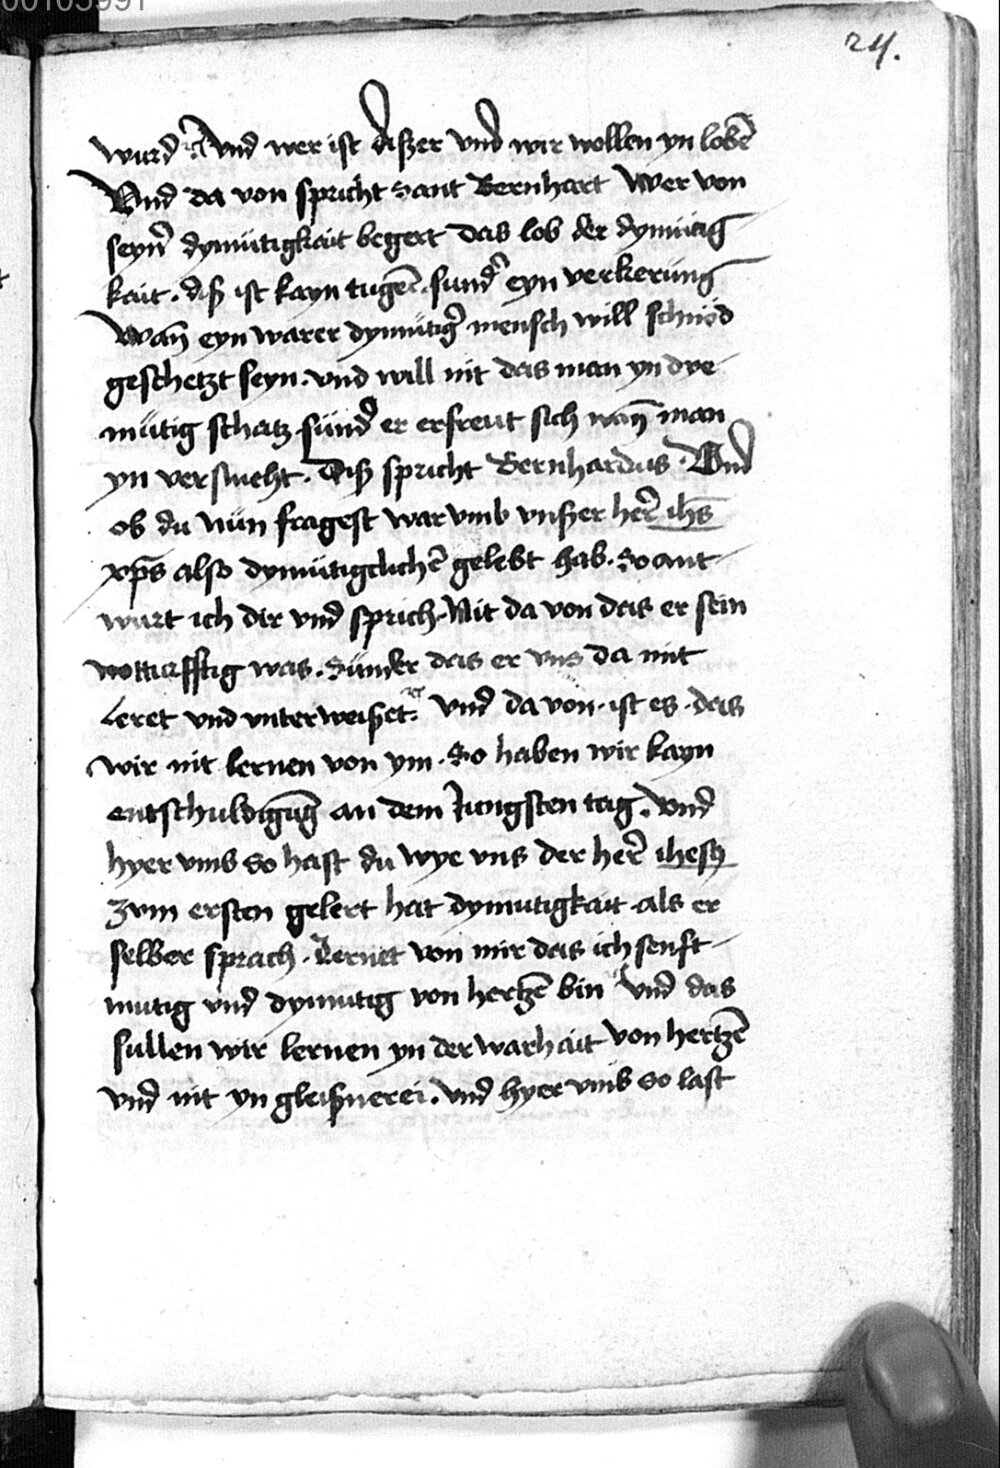 00105991
24.
wurd Und wer ist dißer Und wir wollen yn lobē
Und da von spricht Sant Bernhart Wer von
seyn̄ dymütigkait begert das lob der dymütig
kait. diß ist kayn tugēt. sund̄ eyn verkerung
Wan̄ eyn warer dymütiḡ mensch will schnöd
geschetzt seyn. vnd will nit das man yn dye
mütig schatz sünd̄ er erfreut sich wan̄ man
yn versmeht. Diß spricht Bernhardus. Und
ob du Nün fragest war vmb vnßer her̄ ihs̄
xp̄s also dymütigclichē gelebt hab. So ant
wurt ich dir vnd sprich. Nit da von das er sein
notturfftig was. Sünder das er vns da mit
Leret vnd vnterweißet. Und da von. ist es. das
wir nit lernen von ym. So haben wir kayn
entschuldigūg an dem Jungsten tag. Und
hyer vmb so hast du wye vns der her̄ ihesus
zum ersten gelert hat dymutigkait. als er
selber sprach. Lernet von mir das ich senft
mutig vnd dymutig von hertzē bin Und das
sullen wir lernen yn der warhait von hertzē
vnd nit yn gleißnerei. vnd hyer vmb so last